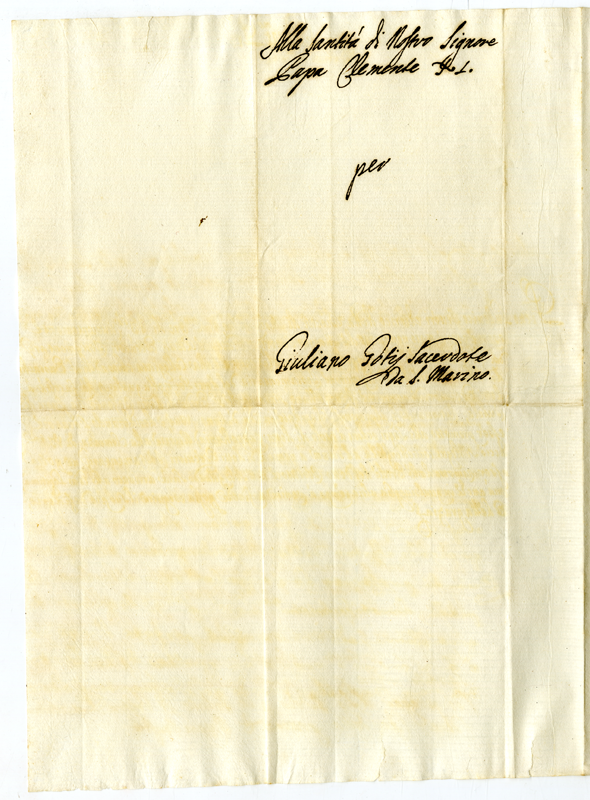 Alla Santità di Nostro Signore
Papa Clemente XI.
per
Giuliano Gozij Sacerdote
da S. Marino.